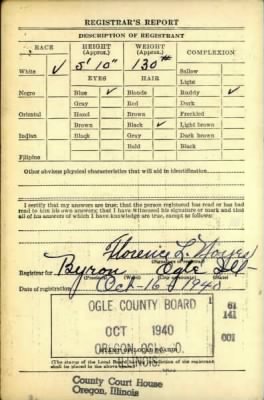 REGISTRAR'S REPORT
DESCRIPTION OF REGISTRANT
RACE HEIGHT (Approx.) WEIGHT (Approx.) COMPLEXION
White ✓ 5' 10" 130# Sallow
EYES HAIR Light
Negro Blue ✓ Blonde Ruddy ✓
Gray Red Dark
Oriental Hazel Brown Freckled
Brown Black ✓ Light brown
Indian Black Gray Dark brown
Bald Black
Filipino
Other obvious physical characteristics that will aid in identification
I certify that my answers are true; that the person registered has read or has had read to him his own answers; that I have witnessed his signature or mark and that all of his answers of which I have knowledge are true, except as follows:
Florence L.
Registrar for Byron Ogle Ill
Date of registration Oct-16 1940
OGLE COUNTY BOARD
OCT 1940
OREGON, OGLE CO.
ILLINOIS
61
141
001
(The stamp of the Local Board having jurisdiction of the registrant shall be placed in the above space.)
County Court House
Oregon, Illinois